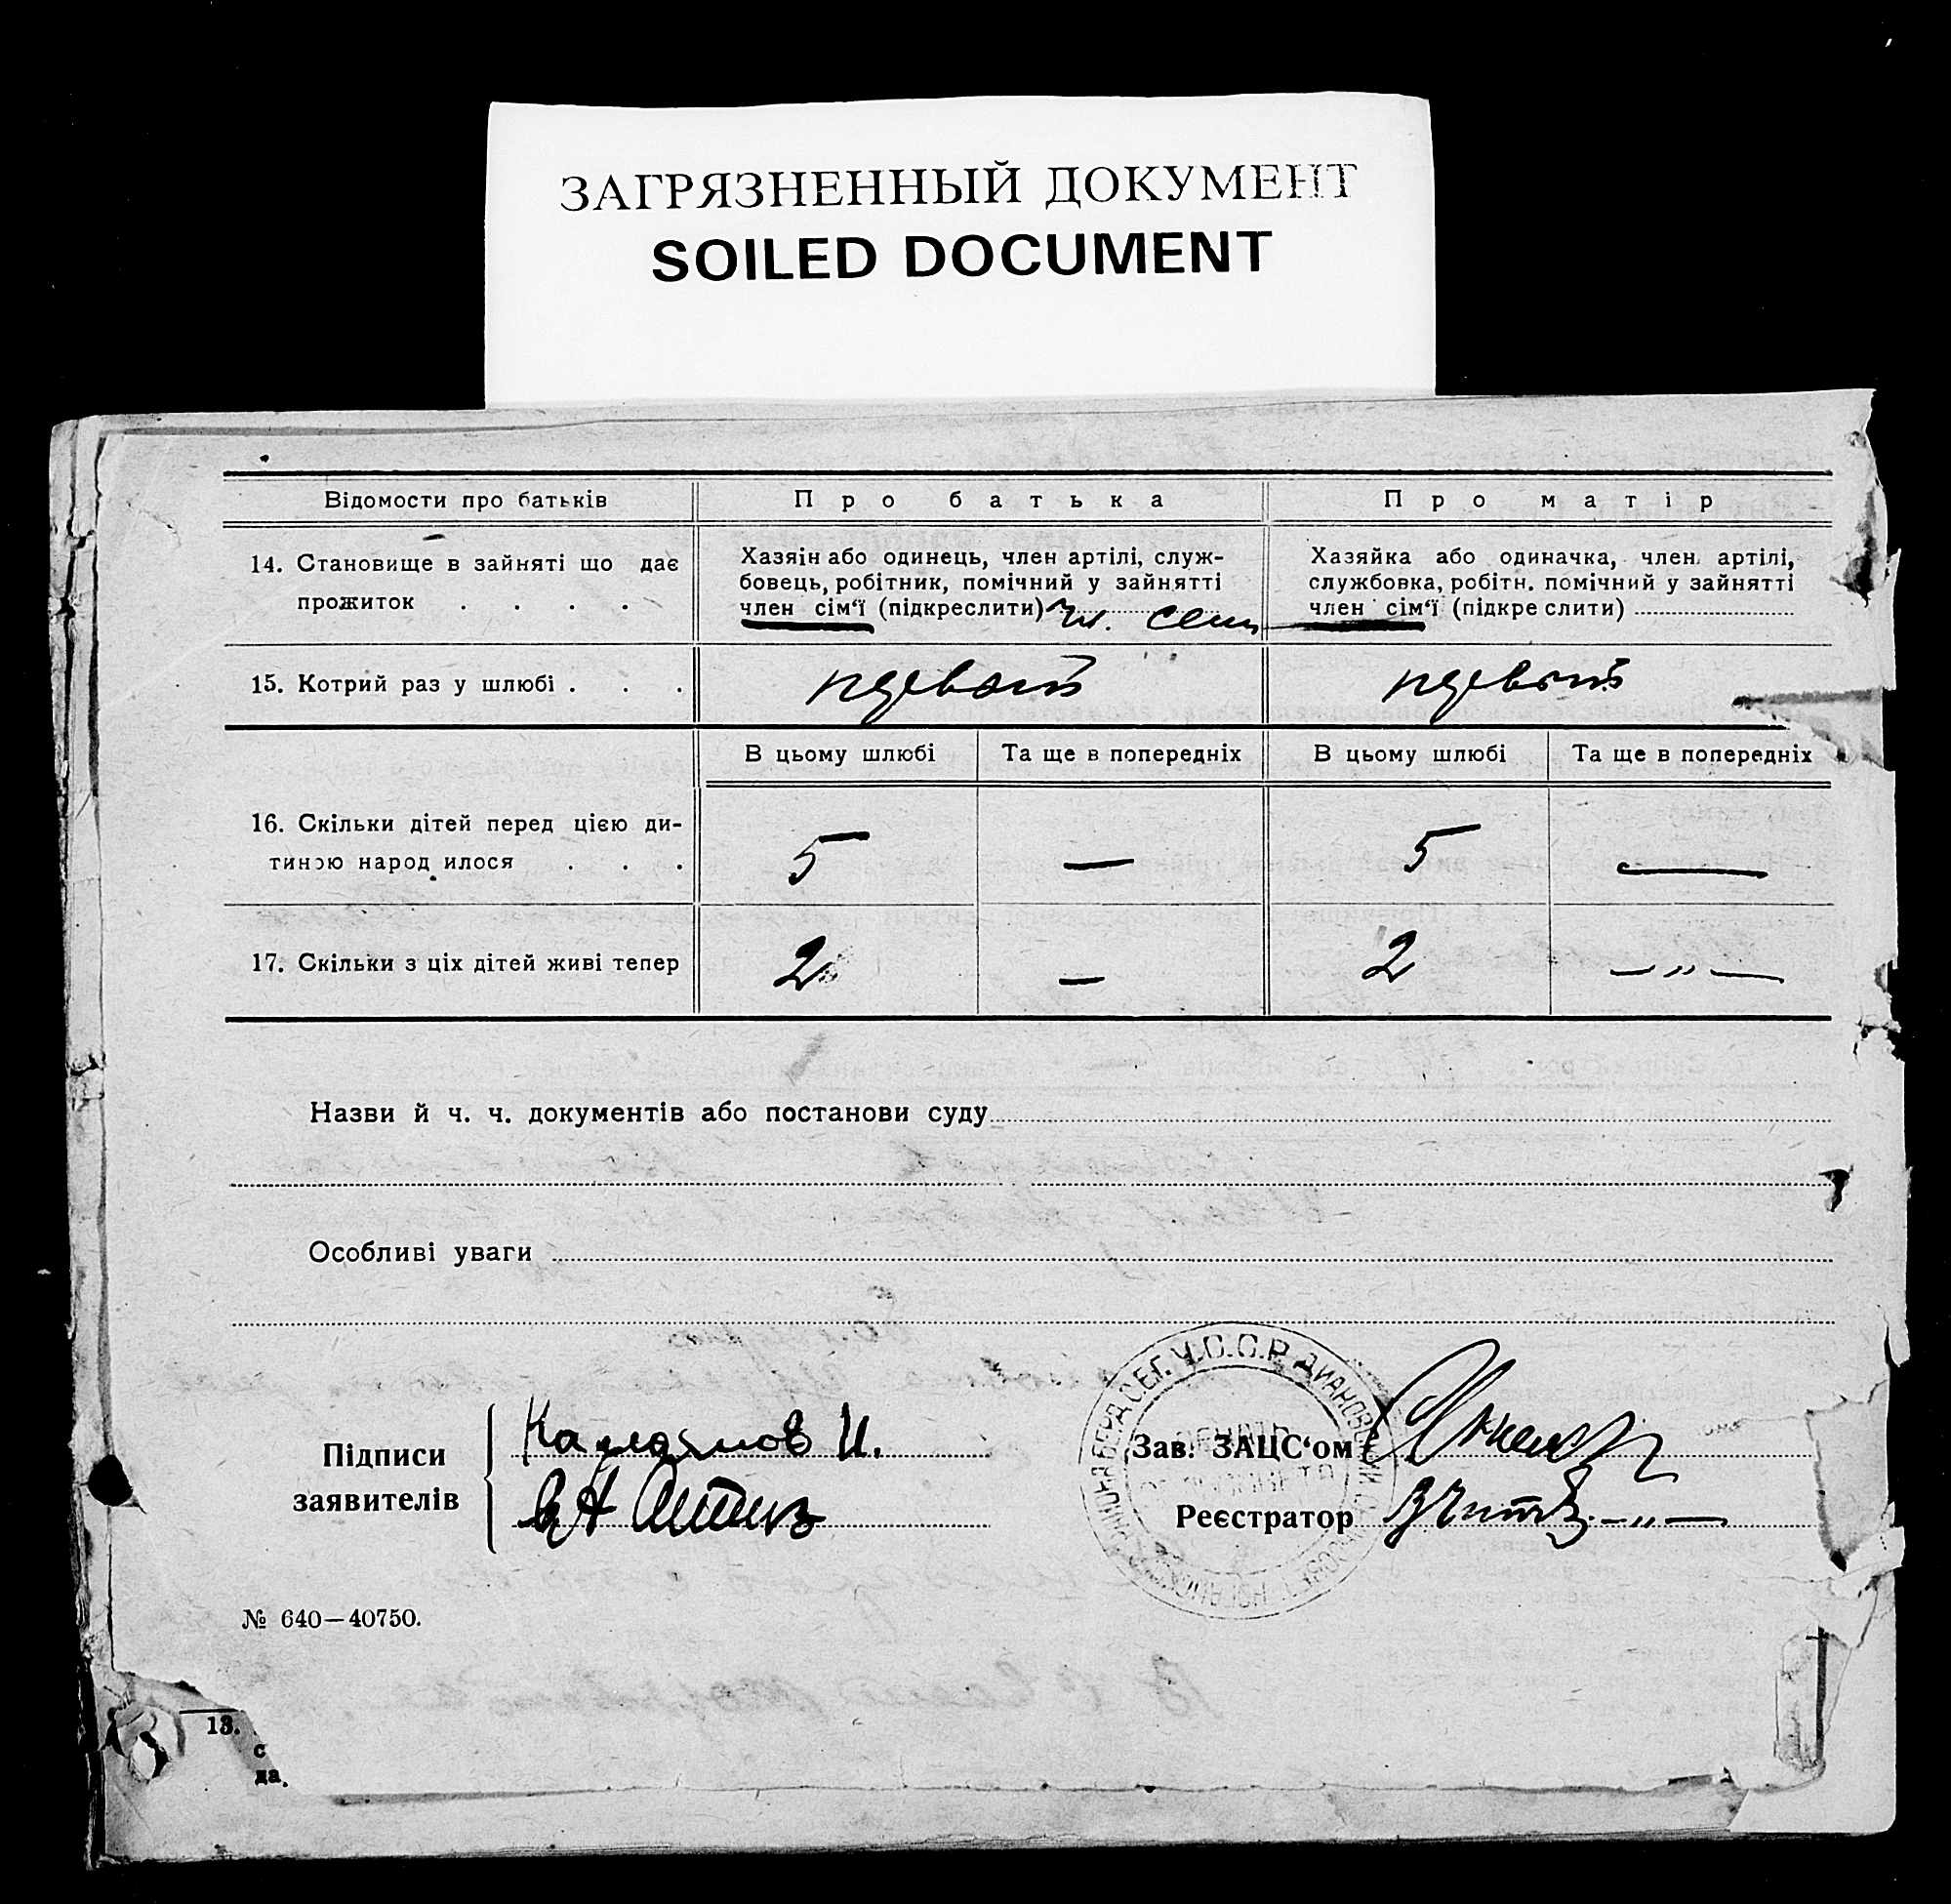 ЗАГРЯЗНЕННЫЙ ДОКУМЕНТ
SOILED DOCUMENT
Відомости про батьків
Про батька
Про матір
14. Становище в зайняті що дає
прожиток . . . .
Хазяін або одинець, член артілі, служ-
бовець, робітник, помічний у зайнятті
член сім‘ї (підкреслити) чл. семи
Хазяйка або одиначка, член артілі,
службовка, робітн. помічний у зайнятті
член сім‘ї (підкре слити)
15. Котрий раз у шлюбі . . .
первый
первый
В цьому шлюбі
Та ще в попередніх
В цьому шлюбі
Та ще в попередніх
16. Скільки дітей перед цією ди-
тиною народ илося . . .
5
—
5
—
17. Скільки з ціх дітей живі тепер
2
—
2
— „ —
Назви й ч. ч. документів або постанови суду
Особливі уваги
Підписи
заявителів
И.
Зав. ЗАЦС‘ом
Реєстратор
У.С.С.Р.
№ 640—40750.
13.
с
да